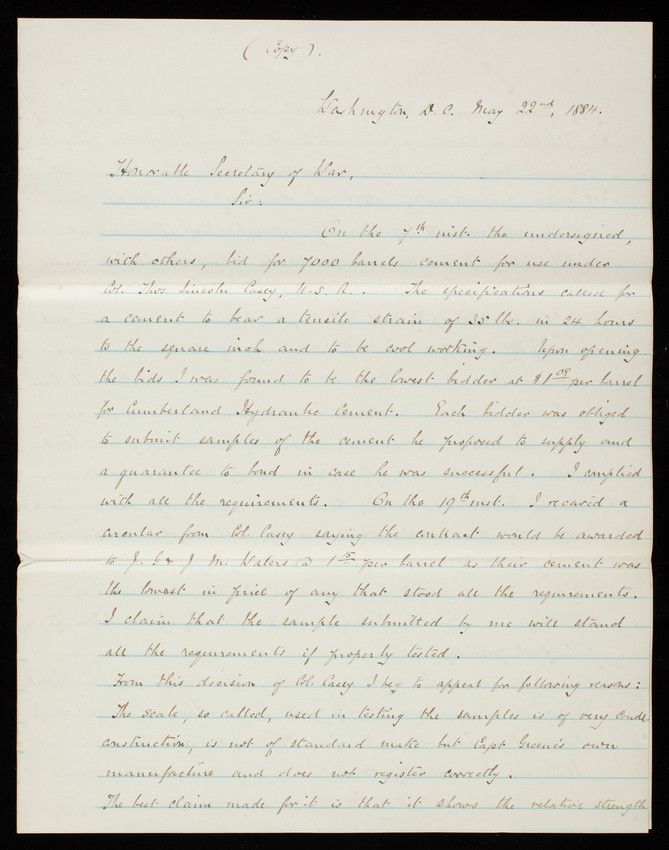 ( Copy ).
Washington, D. C. May 22nd, 1884.
Honorable Secretary of War,
Sir:
On the 7th inst. the undersigned,
with others, bid for 7000 barrels cement for use under
Col. Thos. Lincoln Casey, U. S. A. . The specifications called for
a cement to bear a tensile strain of 35 lbs. in 24 hours
to the square inch and to be cool working. Upon opening
the bids I was found to be the lowest bidder at $1 08 per barrel
for Cumberland Hydraulic Cement. Each bidder was obliged
to submit samples of the cement he proposed to supply and
a guarantee to bond in case he was successful. I complied
with all the requirements. On the 19th inst. I received a
circular from Col. Casey saying the contract would be awarded
to J. G & J. M. Waters @ 1 15 per barrel as their cement was
the lowest in price of any that stood all the requirements.
I claim that the sample submitted by me will stand
all the requirements if properly tested.
From this decision of Col. Casey I beg to appeal for following reasons:
The scale, so called, used in testing the samples is of very crude
construction, is not of standard make but Capt Greene's own
manufacture and does not register correctly.
The best claim made for it is that it shows the relative strength